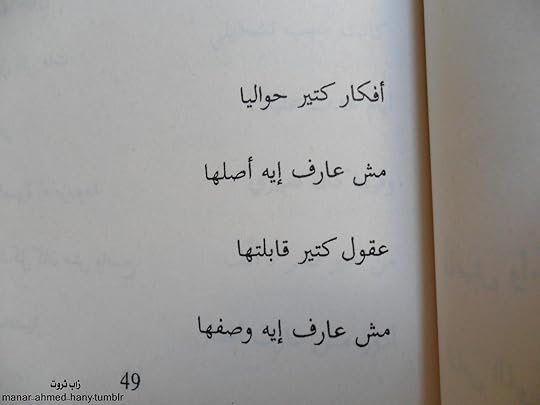 أفكار كتير حواليا
مش عارف إيه أصلها
عقول كتير قابلتها
مش عارف إيه وصفها
49
زاب ثروت
manar-ahmed-hany-tumblr